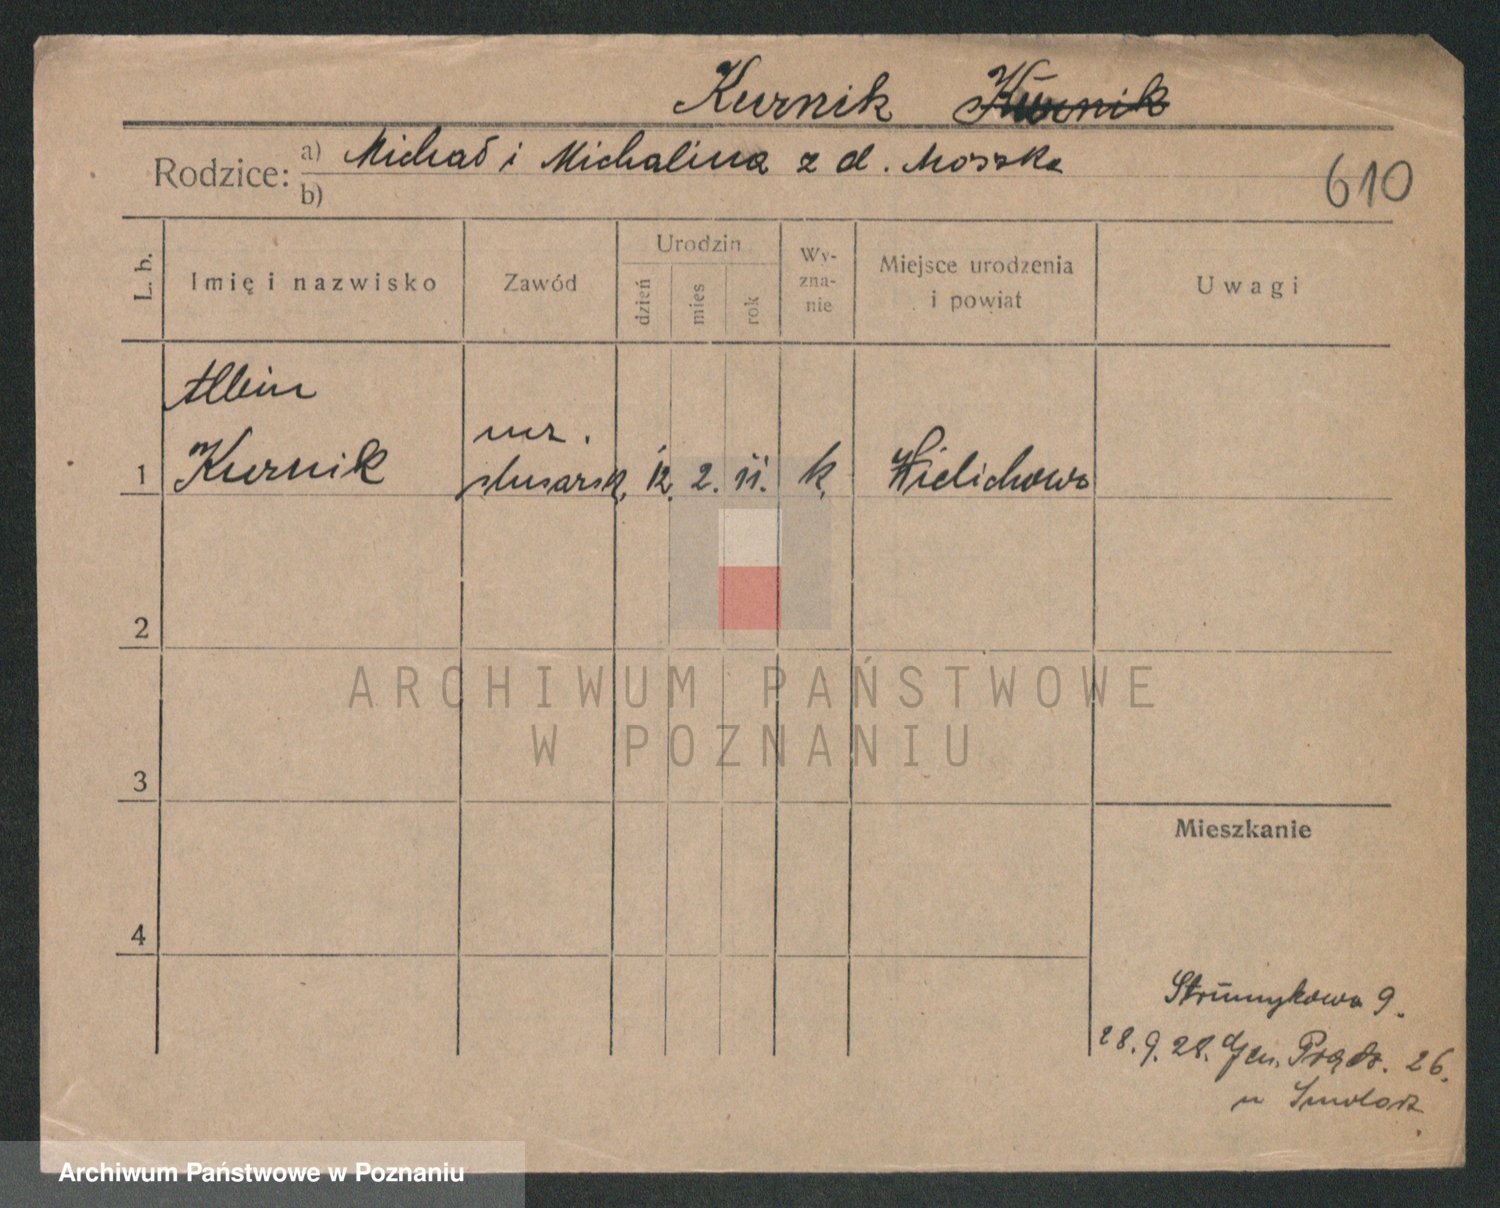 Kurnik Kurnik
Rodzice: a) Michał i Michalina z d. Moszka
b)
610
L. b.
Imię i nazwisko
Zawód
Urodzin
dzień
mies
rok
Wy-
zna-
nie
Miejsce urodzenia
i powiat
Uwagi
Albin
1 Kurnik
ucz.
slusarsk. 12. 2. 11. k. Wielichowo
2
3
4
Mieszkanie
Strumykowa 9.
28.9.28. Gen. Prądz. 26.
u
ARCHIWUM PAŃSTWOWE
W POZNANIU
Archiwum Państwowe w Poznaniu